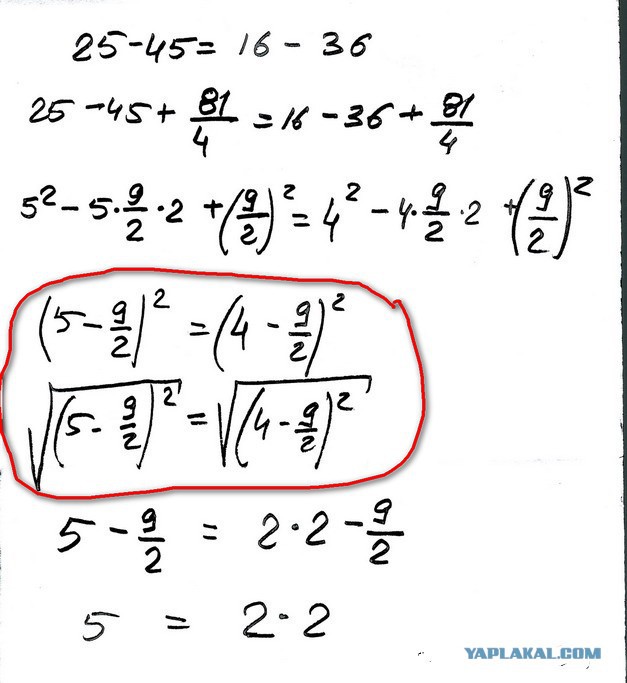 25 - 45 = 16 - 36
25 - 45 + 81/4 = 16 - 36 + 81/4
5² - 5·9/2·2 + (9/2)² = 4² - 4·9/2·2 + (9/2)²
(5 - 9/2)² = (4 - 9/2)²
√(5 - 9/2)² = √(4 - 9/2)²
5 - 9/2 = 2·2 - 9/2
5 = 2·2
YAPLAKAL.COM